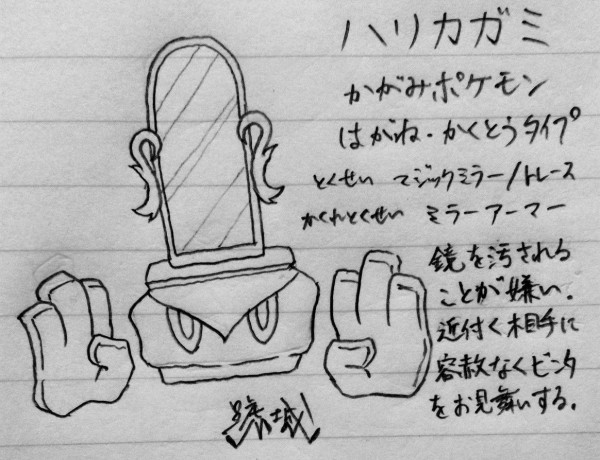 ハリカガミ
かがみポケモン
はがね・かくとうタイプ
とくせい マジックミラー/トレース
かくれとくせい ミラーアーマー
鏡を汚される
ことが嫌い.
近付く相手に
容赦なくビンタ
をお見舞いする.